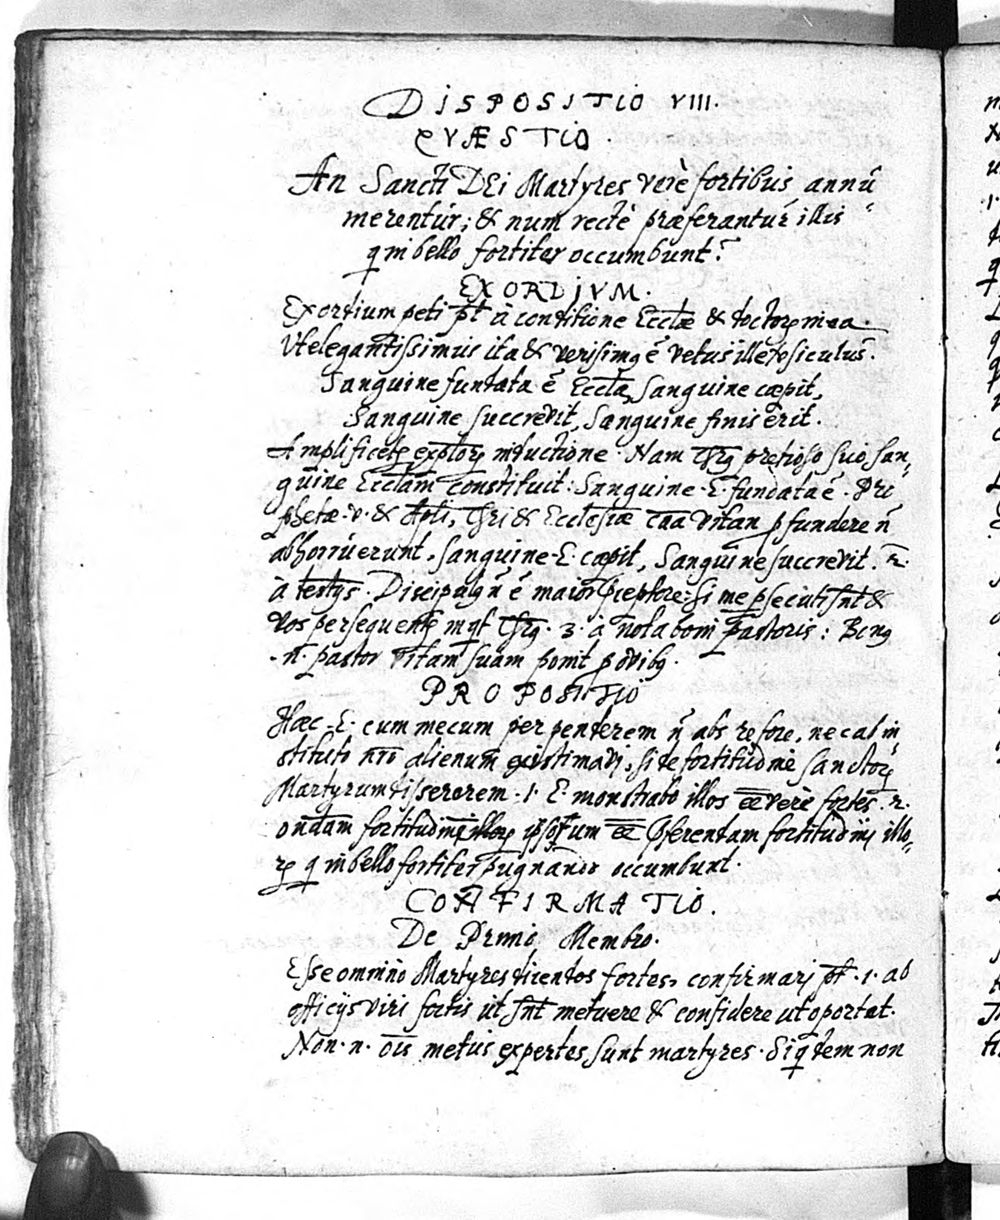 DISPOSITIO VIII.
QVÆSTIO.
An Sancti DEi Martyres verè fortibus annū
merentur; & num rectè præferantur illis
qui bello fortiter occumbunt?
EXORDJVM.
Exordium peti pt à conditione Ecclæ &
Vt elegantissimus ita & verisimq ē vetus ille versiculus.
Sanguine fundata ē Eccla, Sanguine cæpit,
Sanguine succrevit, Sanguine finis erit.
inductione. Nam Chrq pretioso suo San-
guine Ecclam constituit: Sanguine. E. fundata ē. Pro
phetæ. v. & Apli, Chri & Ecclesiæ caa vitam pfundere ñ
abhorruerunt, sanguine. E. cæpit, Sanguine succrevit. 2.
à testijs. Discipulq ñ ē maior pceptore: si me psecuti snt &
vos persequentq inqt Chrq. 3. à nota boni Pastoris: Bonq
.n. pastor vitam suam ponit p ovibq.
PROPOSITIO
Hæc. E. cum mecum perpenderem ñ abs re fore, nec ab in
stituto nro alienum existimavi, si de fortitudine sanctorum
Martyrum dissererem. 1. E. monstrabo illos ee verè fortes. 2.
ondam fortitudinem ipsorum ee pferendam fortitudini illo-
rum qui in bello fortiter pugnando occumbunt.
CONFIRMATIO.
De Primo Membro.
Esse omnino Martyres dicendos fortes, confirmarj pt. 1. ab
officijs viri fortis ut snt metuere & confidere ut oportet.
Non. n. ois metus expertes sunt martyres. Siqdem non